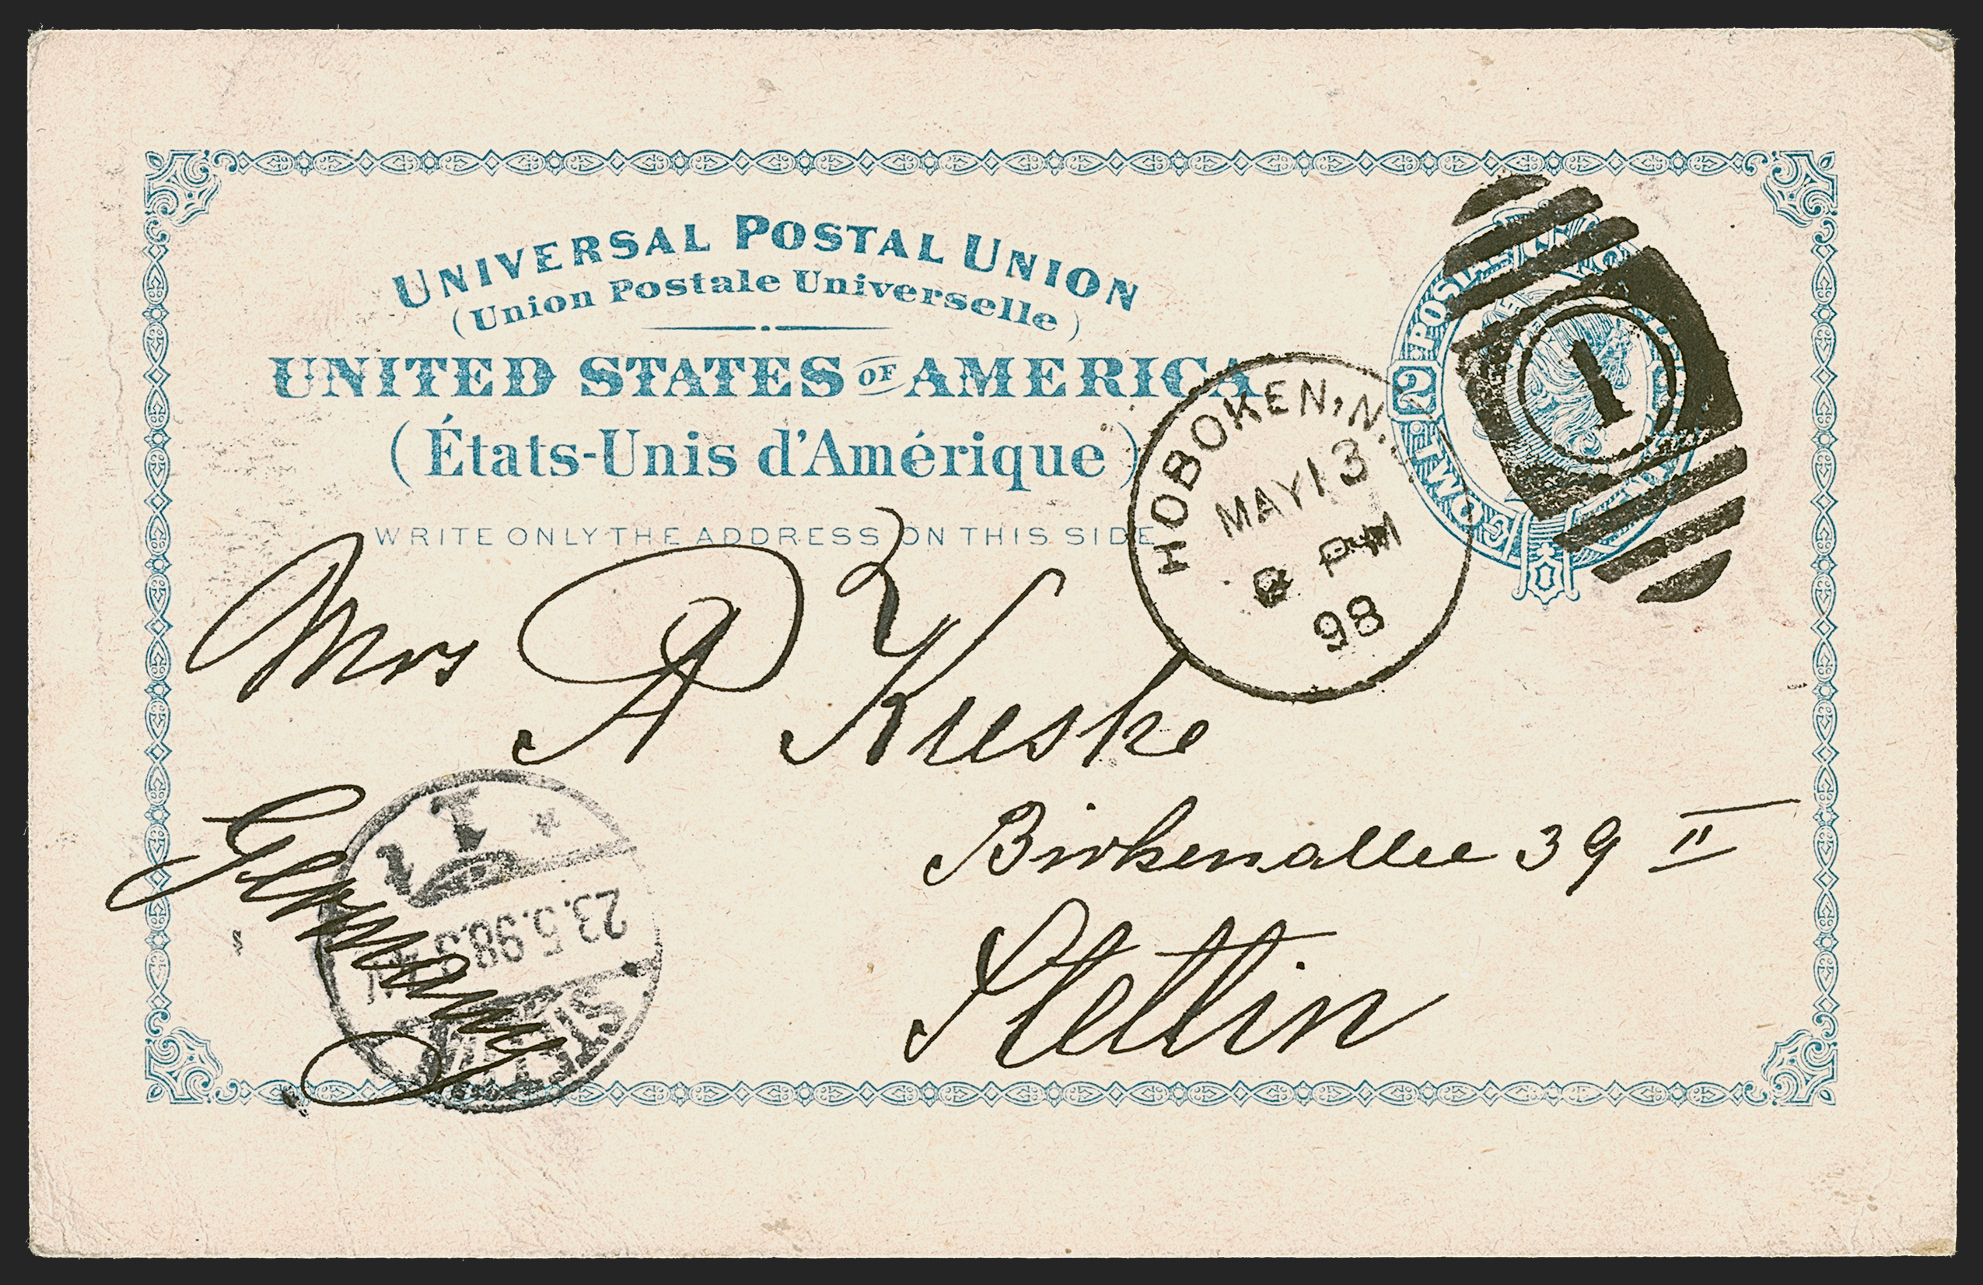 UNIVERSAL POSTAL UNION
(Union Postale Universelle)
UNITED STATES OF AMERICA
(États-Unis d'Amérique)
WRITE ONLY THE ADDRESS ON THIS SIDE
2 POSTAL
HOBOKEN, N.
MAY 13
PM
98
1
Mrs A Kuske
Birkenallee 39 II
Stettin
Germany
STETTIN
23.5.98
1
*